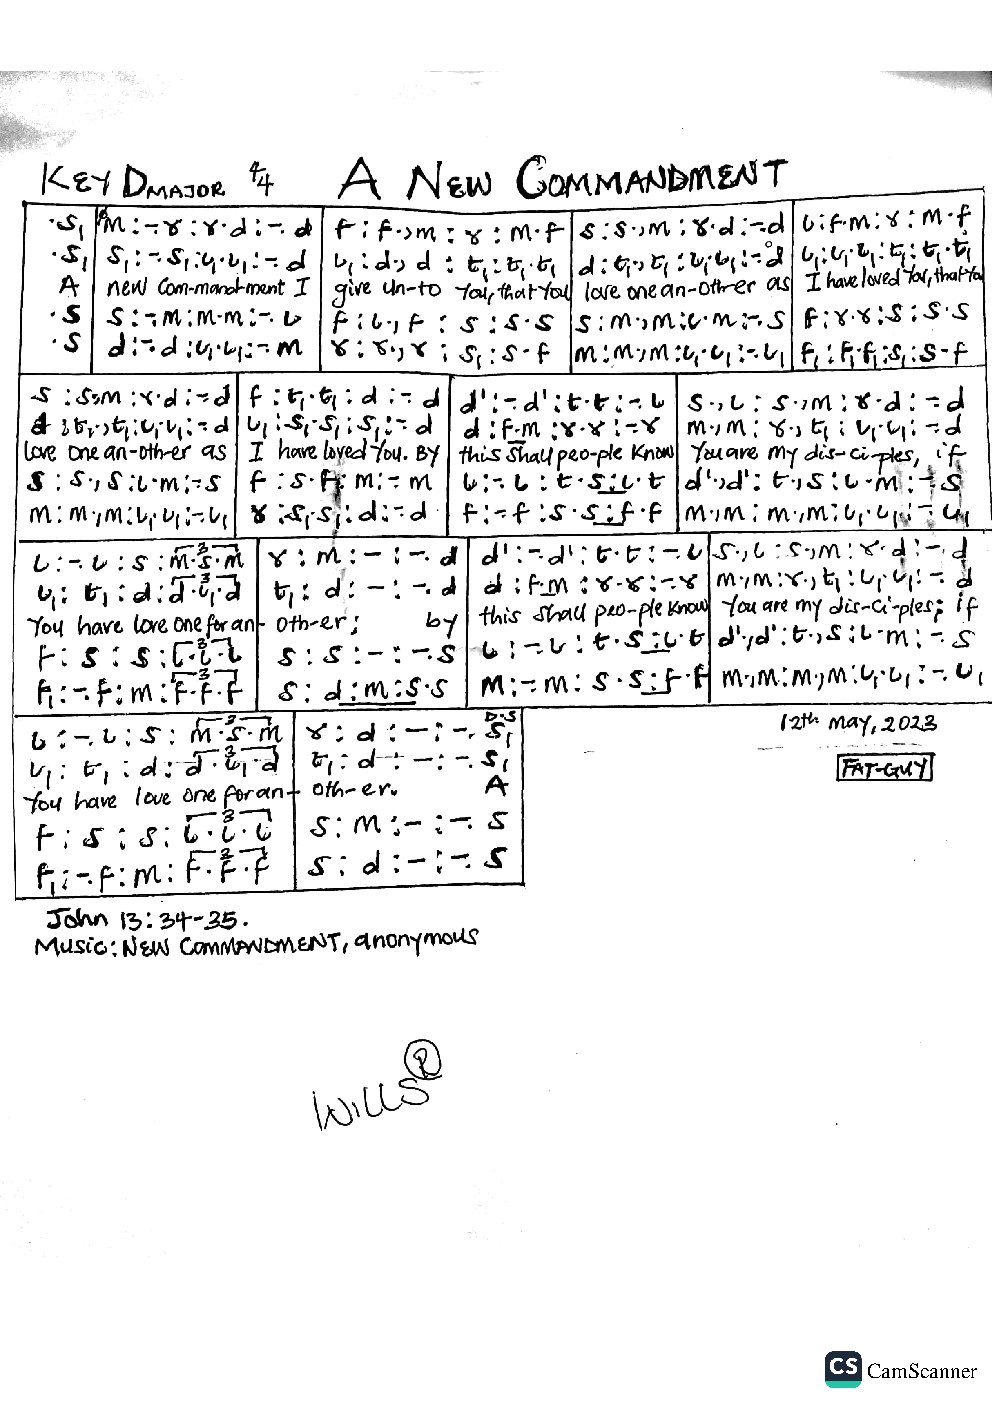 KEY D MAJOR 4/4 A NEW COMMANDMENT
.S₁ | M:-.r:r.d:-.d | f:f.,m:r:m.f | s:s.,m:r.d:-.d | l:f.m:r:m.f
.S₁ | S₁:-.S₁:l₁.l₁:-.d | l₁:d.,d:t₁:t₁.t₁ | d:t₁.,t₁:l₁.l₁:-.d | l₁:l₁.l₁:t₁:t₁.t₁
A | new Com-mand-ment I | give un-to You, that You | love one an-other as | I have loved You, that You
.S | S:-.m:m.m:-.l | f:l.,f:s:s.s | s:m.,m:l.m:-.s | f:r.r:s:s.s
.S | d:-.d:l₁.l₁:-.m | r:r.,r:s₁:s.f | m:m.,m:l₁.l₁:-.l₁ | f₁:f₁.f₁:s₁:s.f
s:s.,m:r.d:-.d | f:t₁.t₁:d:-.d | d':-.d':t.t:-.l | s.,l:s.,m:r.d:-.d
d:t₁.,t₁:l₁.l₁:-.d | l₁:s₁.s₁:s₁:-.d | d:f.m:r.r:-.r | m.,m:r.,t₁:l₁.l₁:-.d
love one an-oth-er as | I have loved You. By | this shall peo-ple Know | You are my dis-ci-ples, if
s:s.,s:l.m:-.s | f:s.f:m:-.m | l:-.l:t.s:l.t | d'.,d':t.,s:l.m:-.s
m:m.,m:l₁.l₁:-.l₁ | r:s₁.s₁:d:-.d | f:-.f:s.s:f.f | m.,m:m.,m:l₁.l₁:-.l₁
l:-.l:s:m.s.m | r:m:-:-.d | d':-.d':t.t:-.l | s.,l:s.,m:r.d:-.d
l₁:t₁:d:d.l₁.d | t₁:d:-:-.d | d:f.m:r.r:-.r | m.,m:r.,t₁:l₁.l₁:-.d
You have love one for an- | oth-er; by | this shall peo-ple Know | You are my dis-ci-ples; if
f:s:s:l.l.l | s:s:-:-.s | l:-.l:t.s:l.t | d'.,d':t.,s:l.m:-.s
f₁:-.f:m:f.f.f | s:d:m:s.s | m:-.m:s.s:f.f | m.,m:m.,m:l₁.l₁:-.l₁
D.S
l:-.l:s:m.s.m | r:d:-:-.s₁
12th May, 2023
l₁:t₁:d:d.l₁.d | t₁:d:-:-.s₁
FAT-GUY
You have love one for an- | oth-er. A
f:s:s:l.l.l | s:m:-:-.s
f₁:-.f:m:f.f.f | s:d:-:-.s
John 13:34-35.
Music: NEW COMMANDMENT, anonymous
WILLS®
CS CamScanner